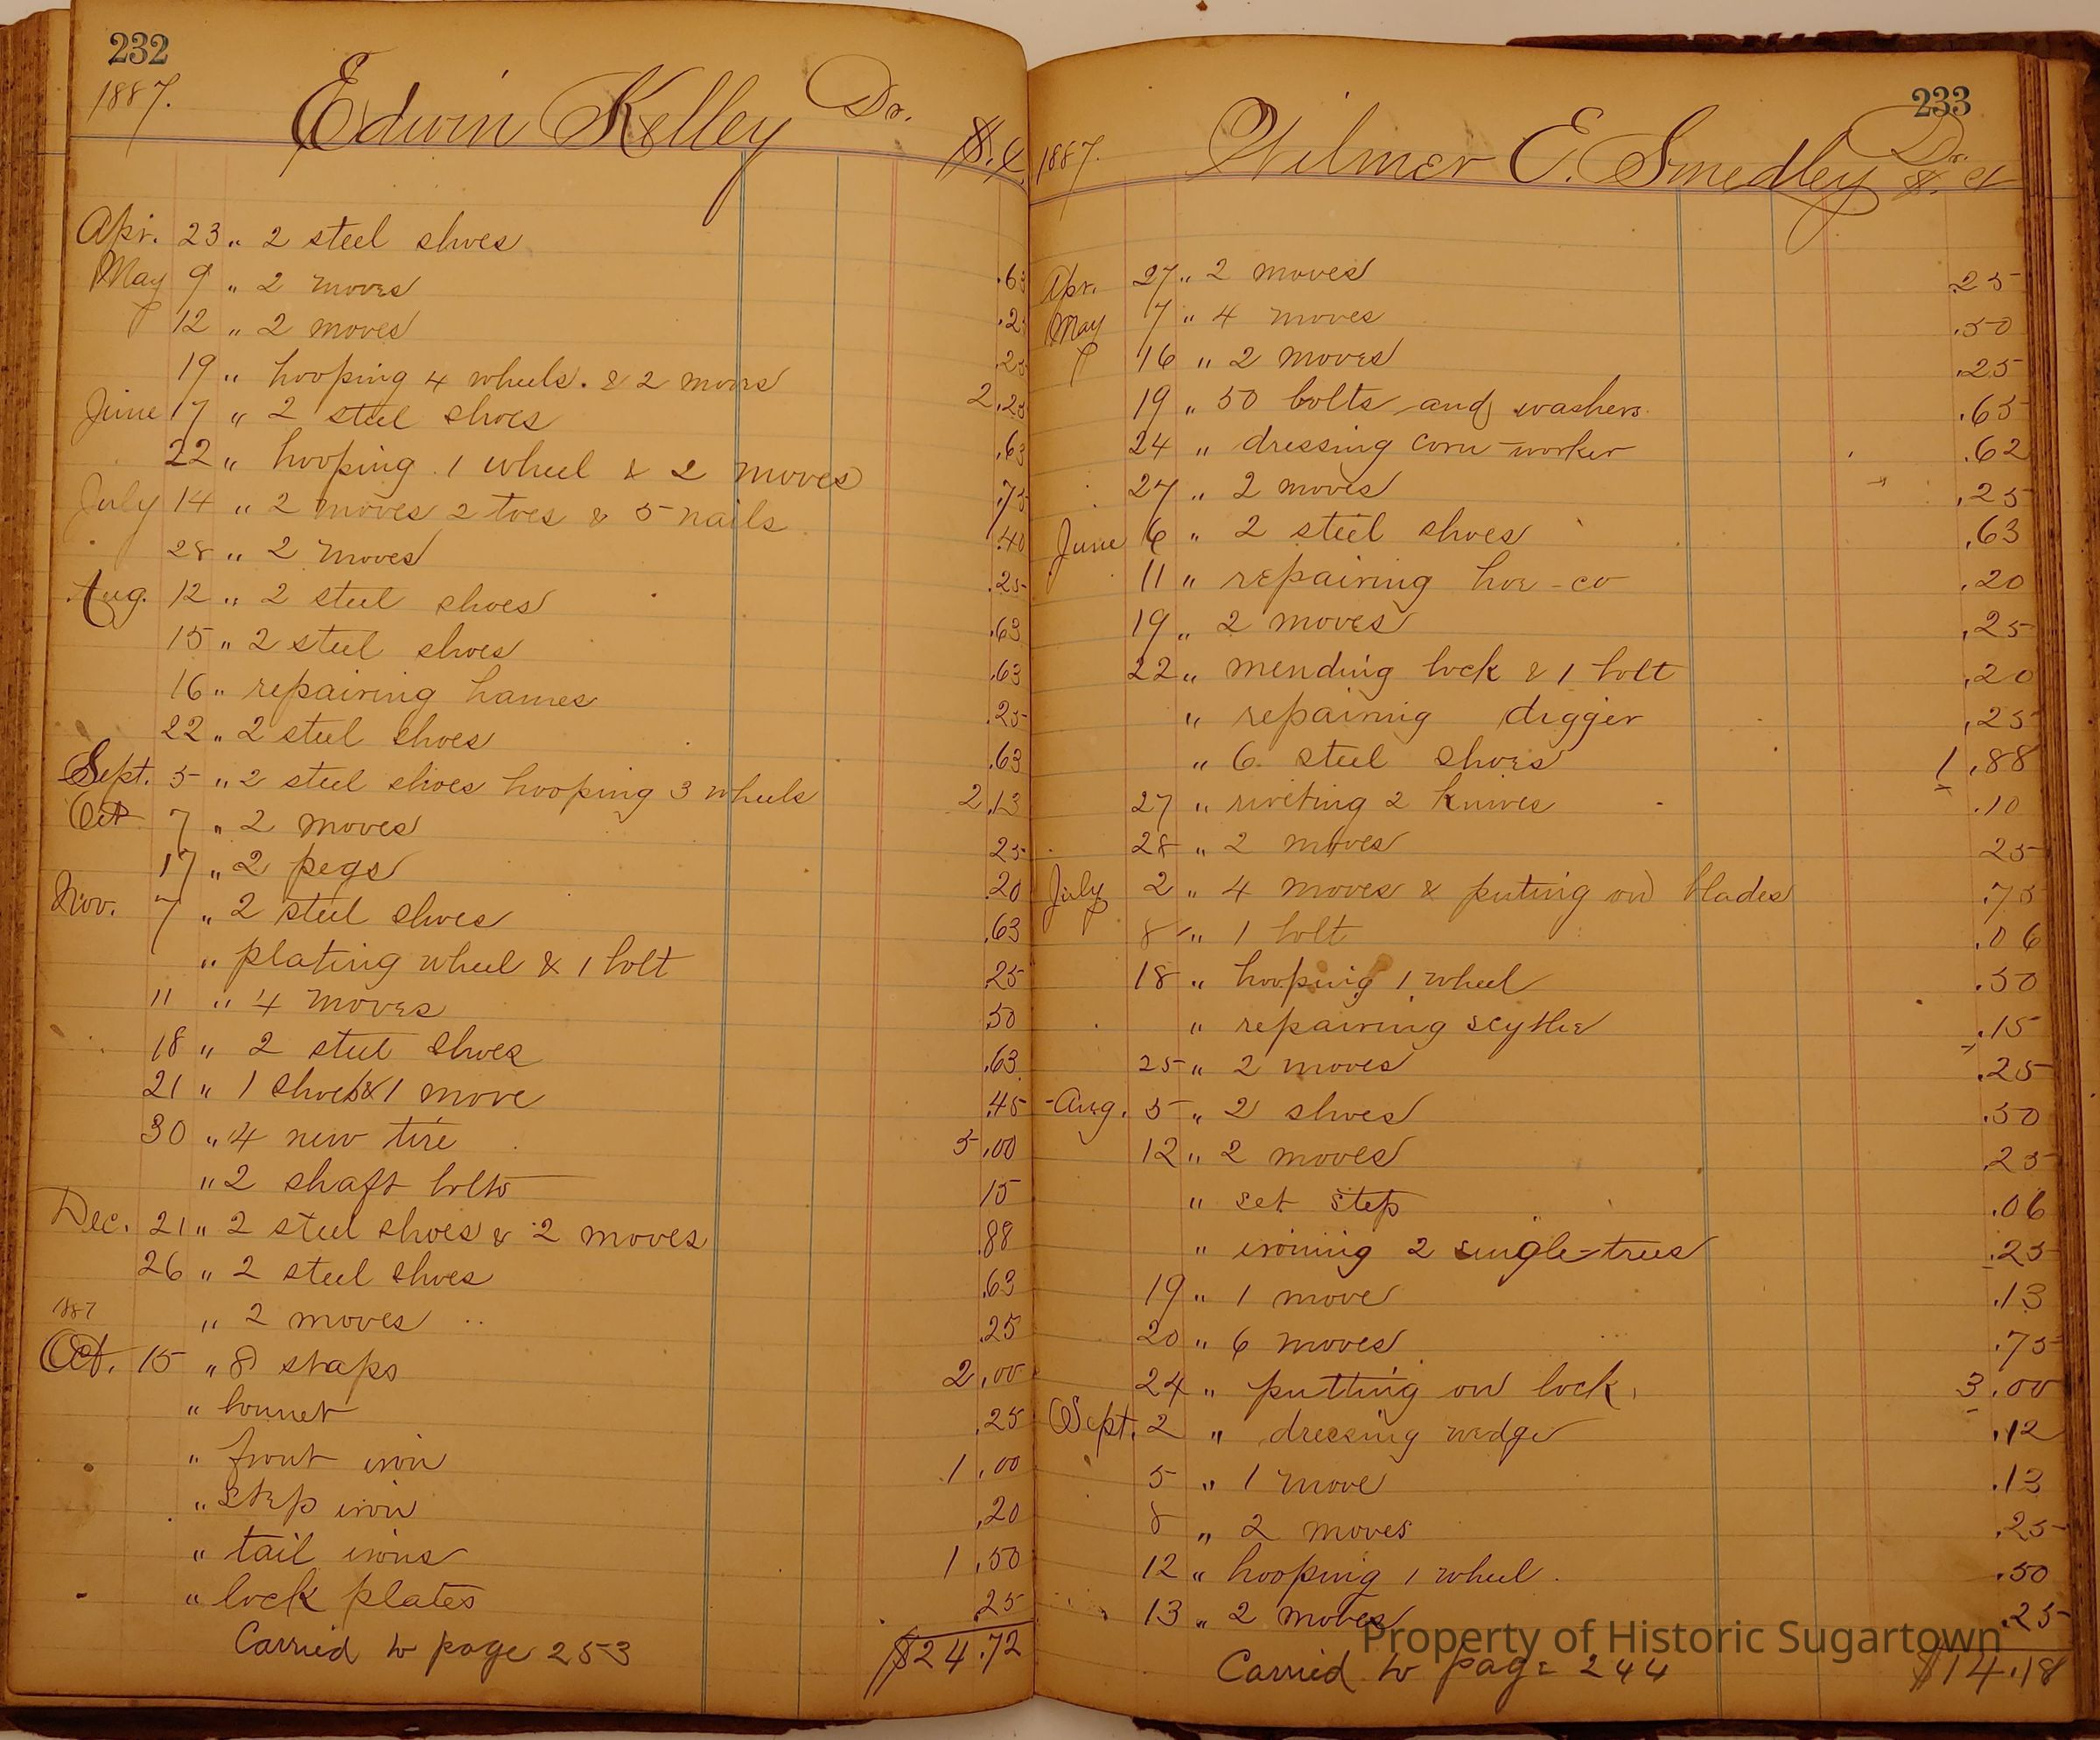 232
1887.
Edwin Kelley Dr.
$. ¢
Apr. 23 " 2 steel shoes .63
May 9 " 2 moves .25
12 " 2 moves .25
19 " hooping 4 wheels. & 2 moves 2.25
June 17 " 2 steel shoes .63
22 " hooping 1 wheel & 2 moves .75
July 14 " 2 moves 2 toes & 5 nails .40
28 " 2 moves .25
Aug. 12 " 2 steel shoes .63
15 " 2 steel shoes .63
16 " repairing hames .25
22 " 2 steel shoes .63
Sept. 5 " 2 steel shoes hooping 3 wheels 2.13
Oct 7 " 2 moves 25
17 " 2 pegs .20
Nov. 7 " 2 steel shoes .63
" plating wheel & 1 bolt .25
11 " 4 moves .50
18 " 2 steel shoes .63
21 " 1 shoe & 1 move .45
30 " 4 new tire 5.00
" 2 shaft bolts 15
Dec. 21 " 2 steel shoes & 2 moves .88
26 " 2 steel shoes .63
1887 " 2 moves .25
Oct. 15 " 8 staps 2.00
" bonnet .25
" front iron 1.00
" step iron .20
" tail irons 1.50
" lock plates .25
Carried to page 253 $24.72
233
1887.
Wilmer E. Smedley Dr.
$. ct
Apr. 27 " 2 moves .25
May 7 " 4 moves .50
16 " 2 moves .25
19 " 50 bolts and washers .65
24 " dressing corn-worker .62
27 " 2 moves .25
June 6 " 2 steel shoes .63
11 " repairing hoe-co .20
19 " 2 moves .25
22 " mending lock & 1 bolt .20
" repairing digger .25
" 6 steel shoes 1.88
27 " riveting 2 knives .10
28 " 2 moves 25
July 2 " 4 moves & puting on blades .75
8 " 1 bolt .06
18 " hooping 1 wheel .50
" repairing scythe .15
25 " 2 moves .25
Aug. 5 " 2 shoes .50
12 " 2 moves .25
" set step .06
" ironing 2 single-trees .25
19 " 1 move .13
20 " 6 moves .75
24 " putting on lock 3.00
Sept. 2 " dressing wedge .12
5 " 1 move .13
8 " 2 moves .25
12 " hooping 1 wheel. .50
13 " 2 moves .25
Property of Historic Sugartown
Carried to page 244 $14.18